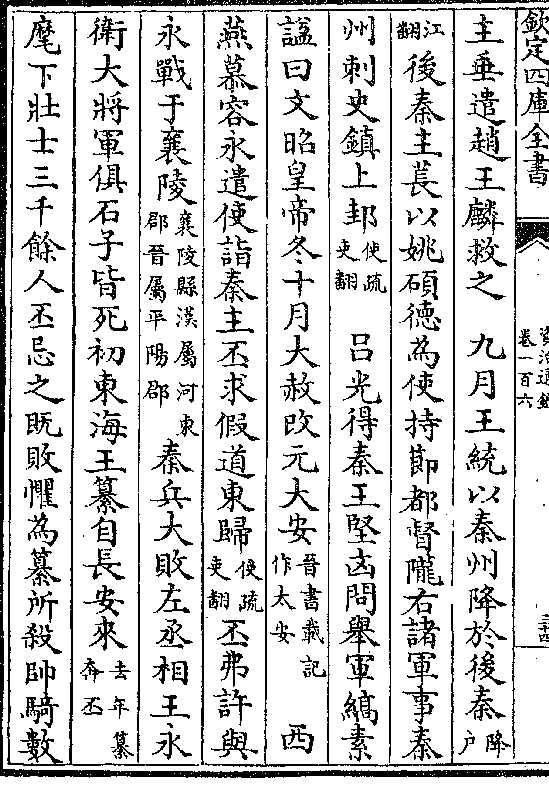 欽定四庫全書
資治通鑑
卷一百六
主垂遣趙王麟救之　九月王統以秦州降於後秦降户
江翻後秦主萇以姚碩德為使持節都督隴右諸軍事秦
州刺史鎮上邽使疏吏翻　吕光得秦王堅凶問舉軍縞素
諡曰文昭皇帝冬十月大赦改元大安晉書載記作太安　西
燕慕容永遣使詣秦主丕求假道東歸使疏吏翻丕弗許與
永戰于襄陵襄陵縣漢屬河東郡晉屬平陽郡秦兵大敗左丞相王永
衛大將軍俱石子皆死初東海王纂自長安來去年纂奔丕
麾下壯士三千餘人丕忌之既敗懼為纂所殺帥騎數